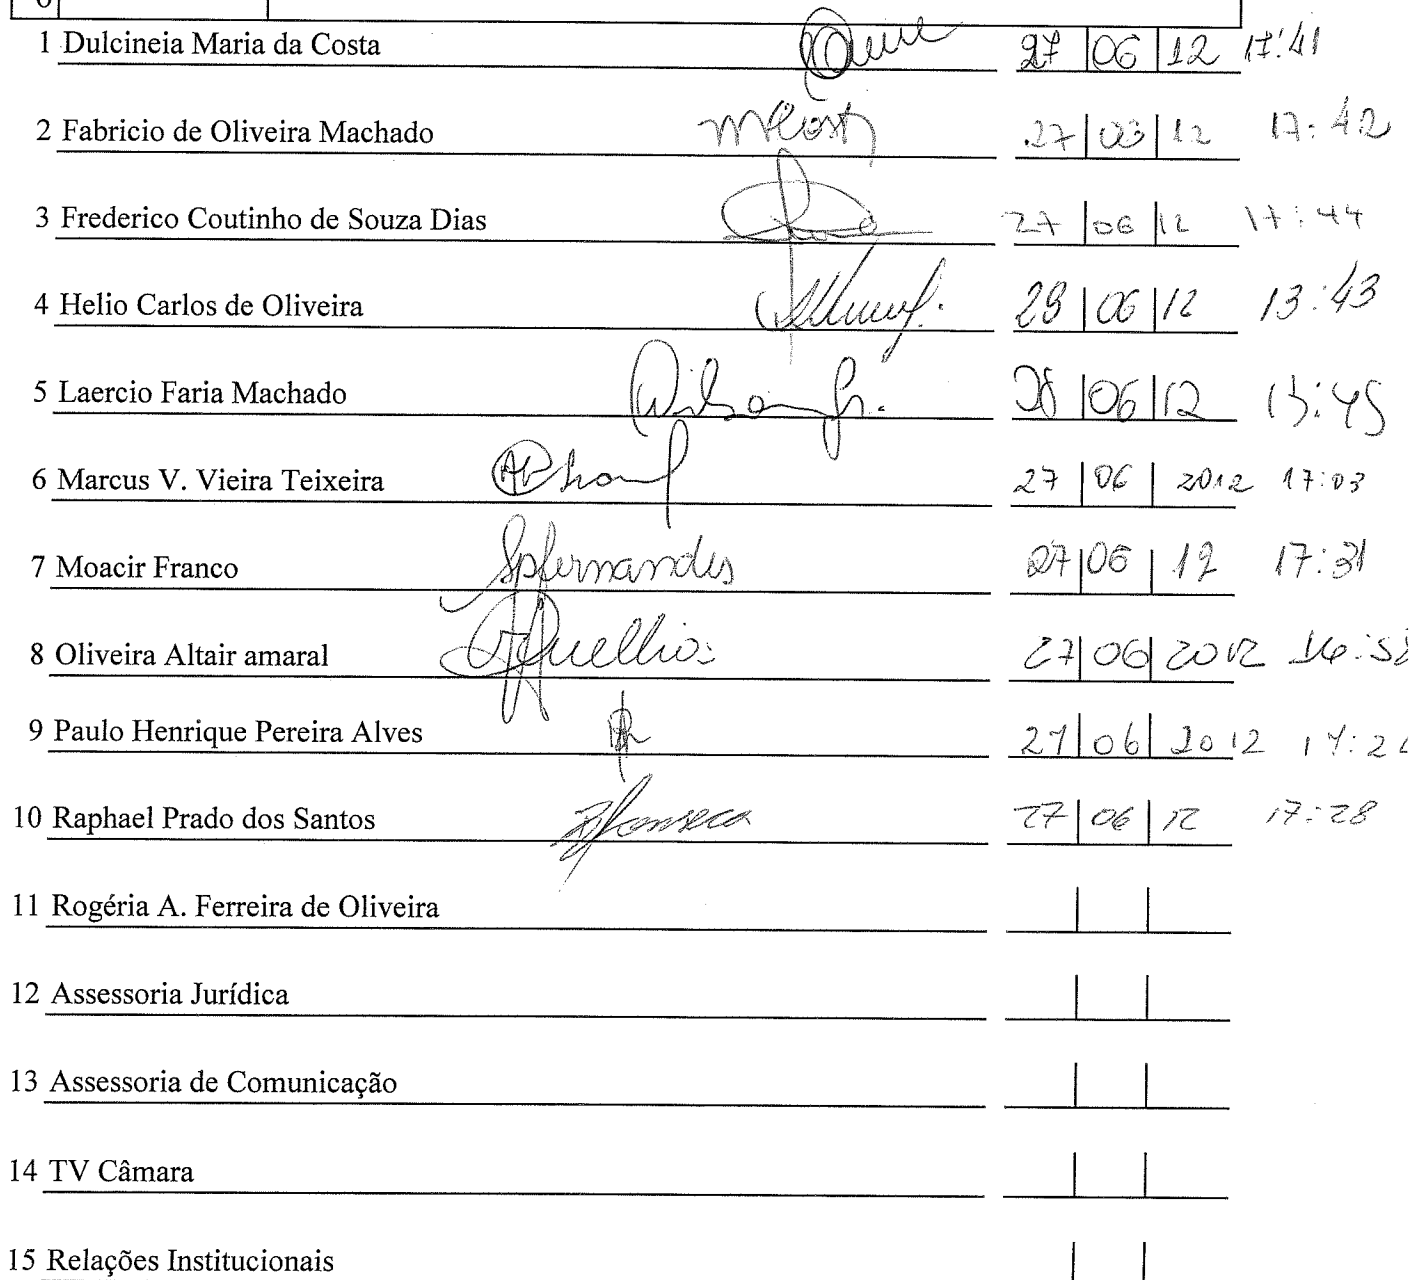 1 Dulcineia Maria da Costa 27 06 12 17:41
2 Fabricio de Oliveira Machado mCosta 27 03 12 17:42
3 Frederico Coutinho de Souza Dias 27 06 12 17:44
4 Helio Carlos de Oliveira 28 06 12 13:43
5 Laercio Faria Machado Wilson Jr. 28 06 12 13:45
6 Marcus V. Vieira Teixeira 27 06 2012 17:03
7 Moacir Franco Spfernandes 27 06 12 17:31
8 Oliveira Altair amaral 27 06 2012
9 Paulo Henrique Pereira Alves 27 06 2012
10 Raphael Prado dos Santos Fonseca 27 06 12 17:28
11 Rogéria A. Ferreira de Oliveira
12 Assessoria Jurídica
13 Assessoria de Comunicação
14 TV Câmara
15 Relações Institucionais